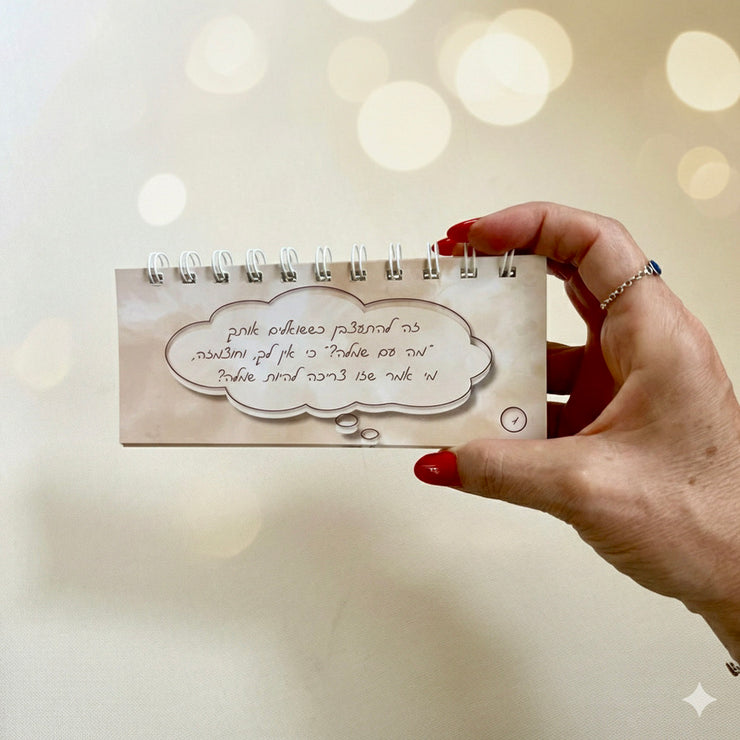 זה להתעצבן כששואלים אותך
"מה עם שמלה?" כי אין לך, וחוצמזה,
מי אמר שזו צריכה להיות שמלה?
1